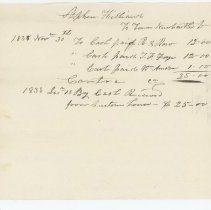 Stephen Williams
To Lewis
1838 Nov 30th To Cash paid R. S. Row 12=00
" Cash paid T. F. Foye 12=00
" Cash paid W. 1=00
25=00
Contra Cr
1838 Dec By Cash Received
from Custom house - $25=00